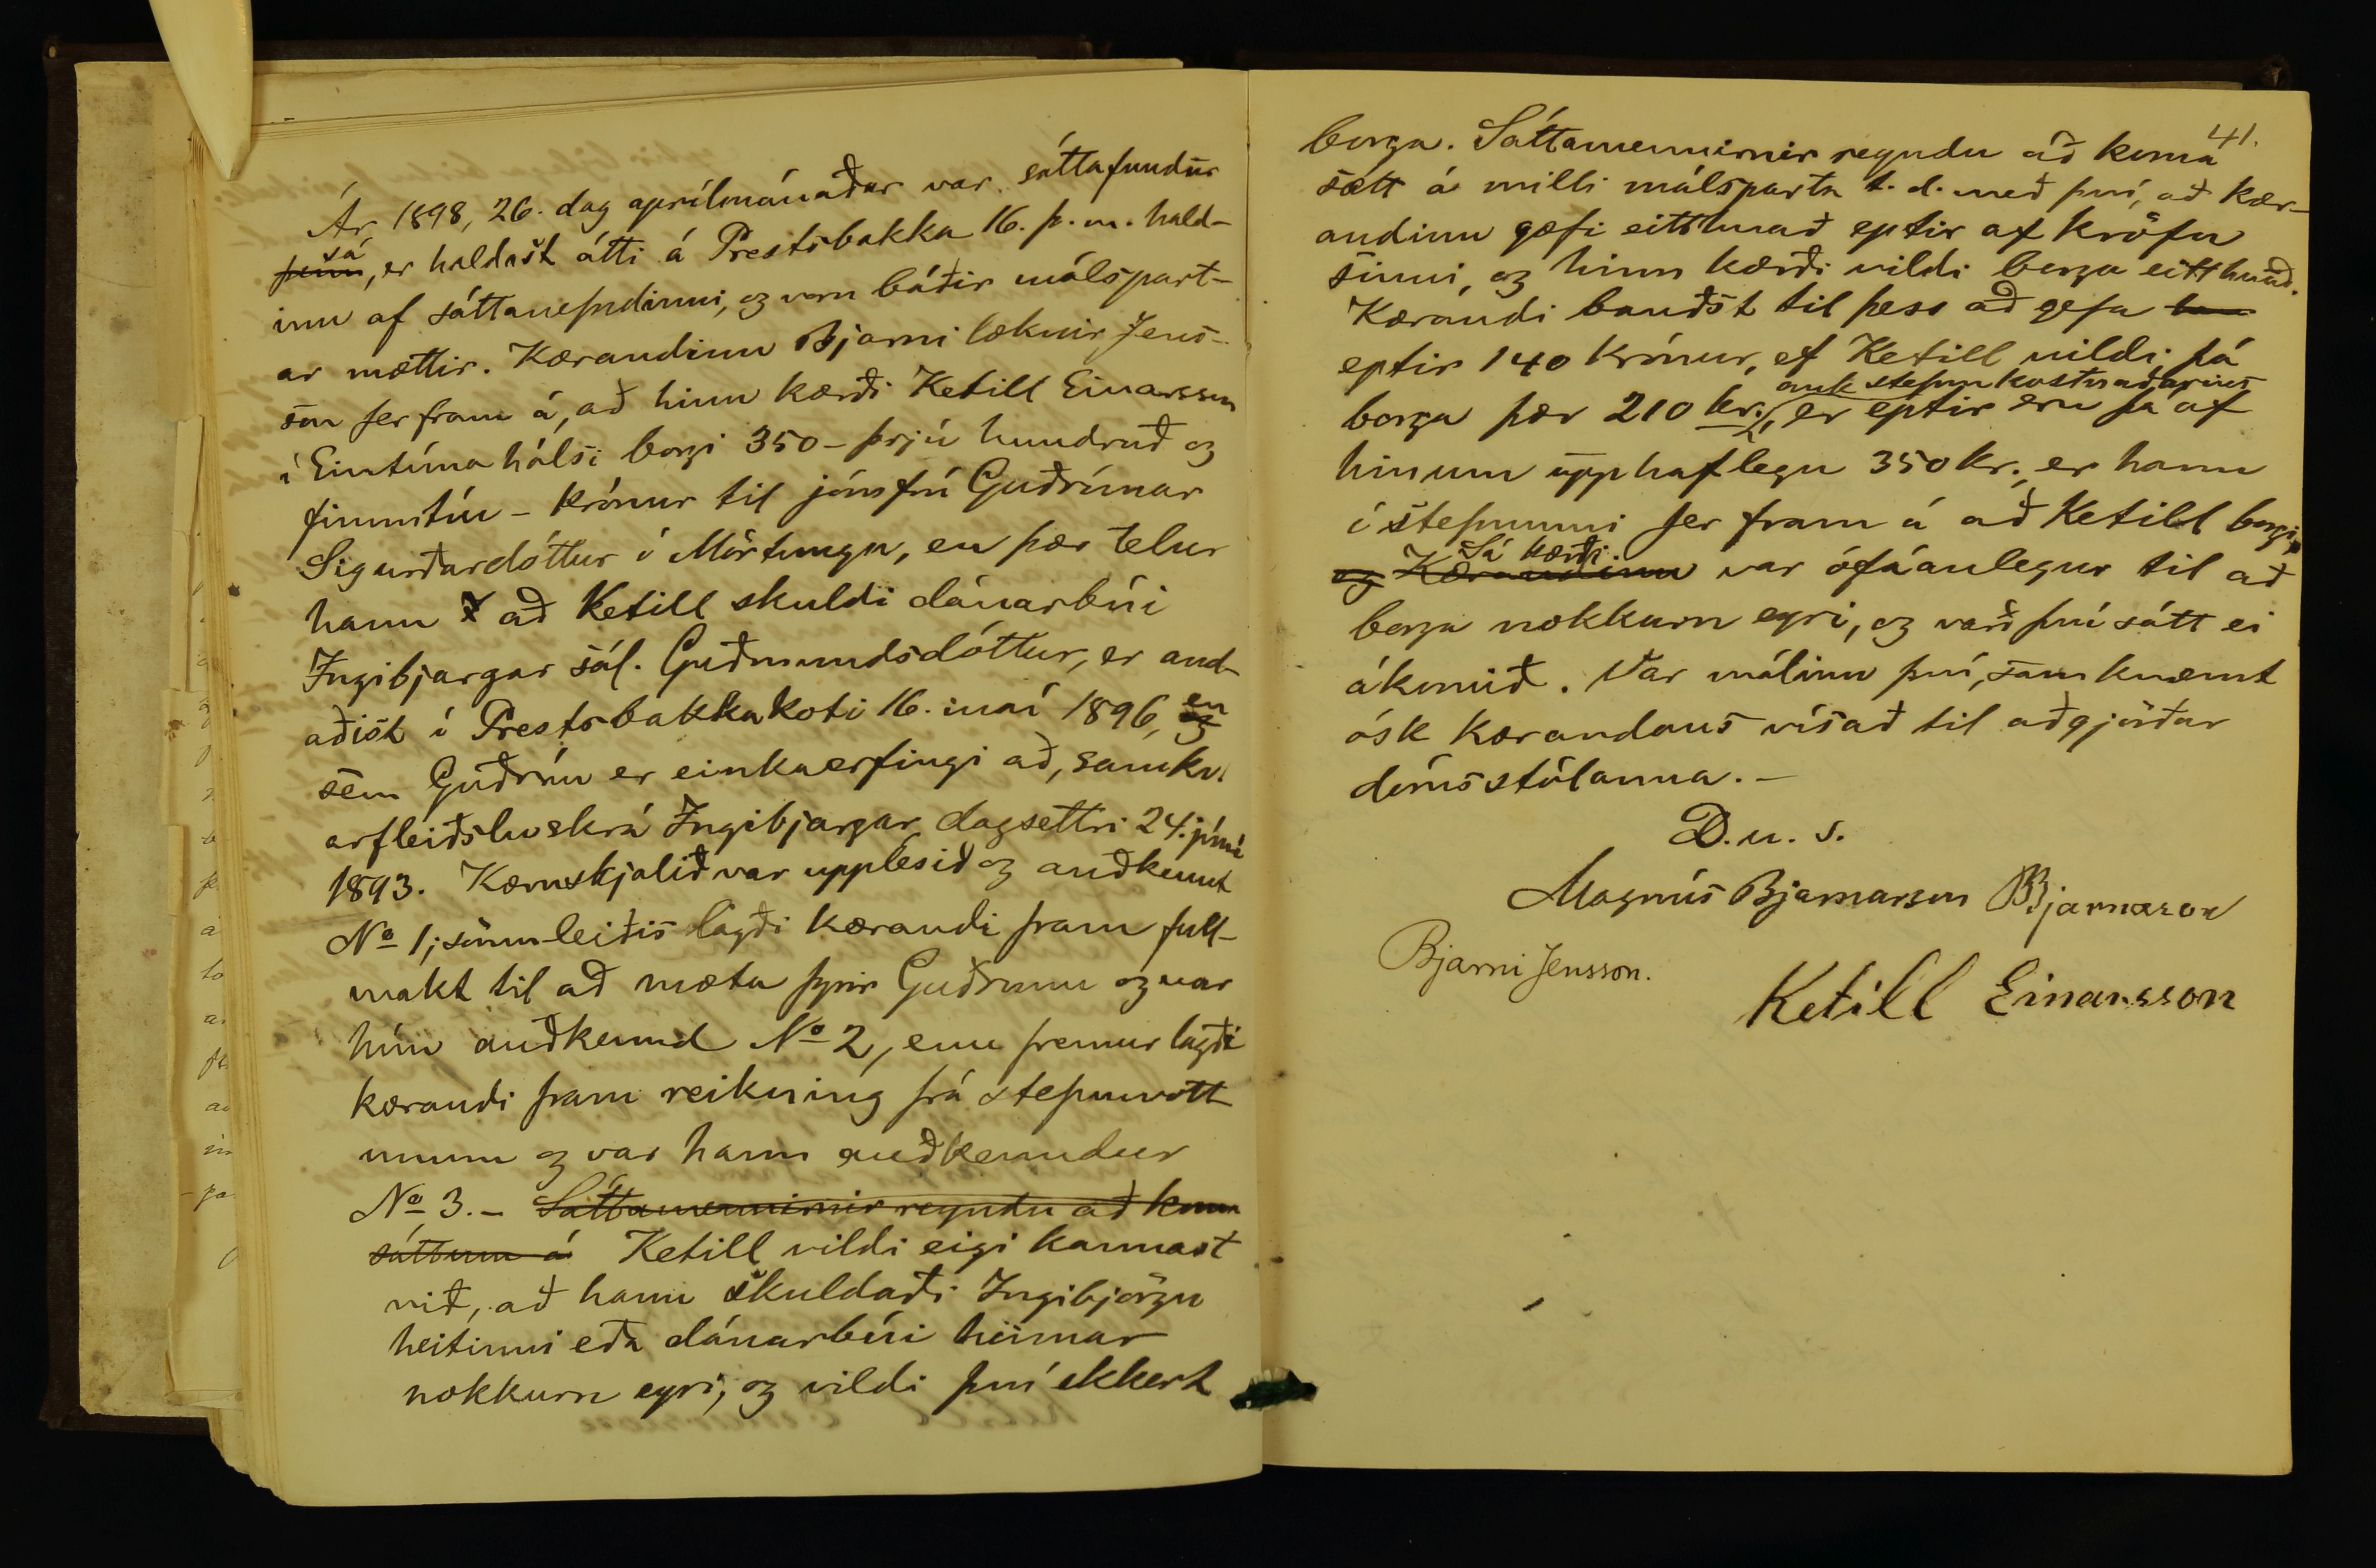 Ár 1898, 26. dag aprílmánaðar var sáttafundur
sá, er haldast átti á Prestsbakka 16. þ. m. hald-
inn af sáttanefndinni, og voru báðir málspart-
ar mættir. Kærandinn Bjarni læknir Jens-
son fer fram á, að hinn kærði Ketill Einarsson
í Eintúnahálsi borgi 350 - þrjú hundruð og
fimmtíu - krónur til jómfrú Guðrúnar
Sigurðardóttur í Mörtungu, en þær telur
hann að Ketill skuldi dánarbúi
Ingibjargar sál. Guðmundsdóttur, er and-
aðist í Prestsbakkakoti 16. maí 1896, en
sem Guðrún er einkaerfingi að, samkv.
arfleiðsluskrá Ingibjargar, dagsettri 24. júní
1893. Kæruskjalið var upplesið og auðkennt
No 1; sömuleiðis lagði kærandi fram full-
makt til að mæta fyrir Guðrúnu og var
hún auðkennd No 2, enn fremur lagði
kærandi fram reikning frá stefnuvott
unum og var hann auðkenndur
No 3. - Sáttamennirnir reyndu að koma
sáttum á Ketill vildi eigi kannast
við, að hann skuldaði Ingibjörgu
heitinni eða dánarbúi hennar
nokkurn eyri, og vildi því ekkert
41.
borga. Sáttamennirnir reyndu að koma
sætt á milli málsparta t. d. með því, að kær-
andinn gæfi eitthvað eptir af kröfu
sinni, og hinn kærði vildi borga eitthvað.
Kærandi bauðst til þess að gefa
eptir 140 krónur, ef Ketill vildi þá
auk stefnukostnaðarins
borga þær 210 kr., er eptir eru þá af
hinum upphaflegu 350 kr., er hann
í stefnunni fer fram á að Ketill borgi.
Sá kærði
og Kærandinn var ófáanlegur til að
borga nokkurn eyri, og varð því sátt ei
ákomið. Var málinu því, samkvæmt
ósk kærandans vísað til aðgjörðar
dómsstólanna. -
D. u. s.
Magnús Bjarnarson BBjarnason
Bjarni Jensson.
Ketill Einarsson